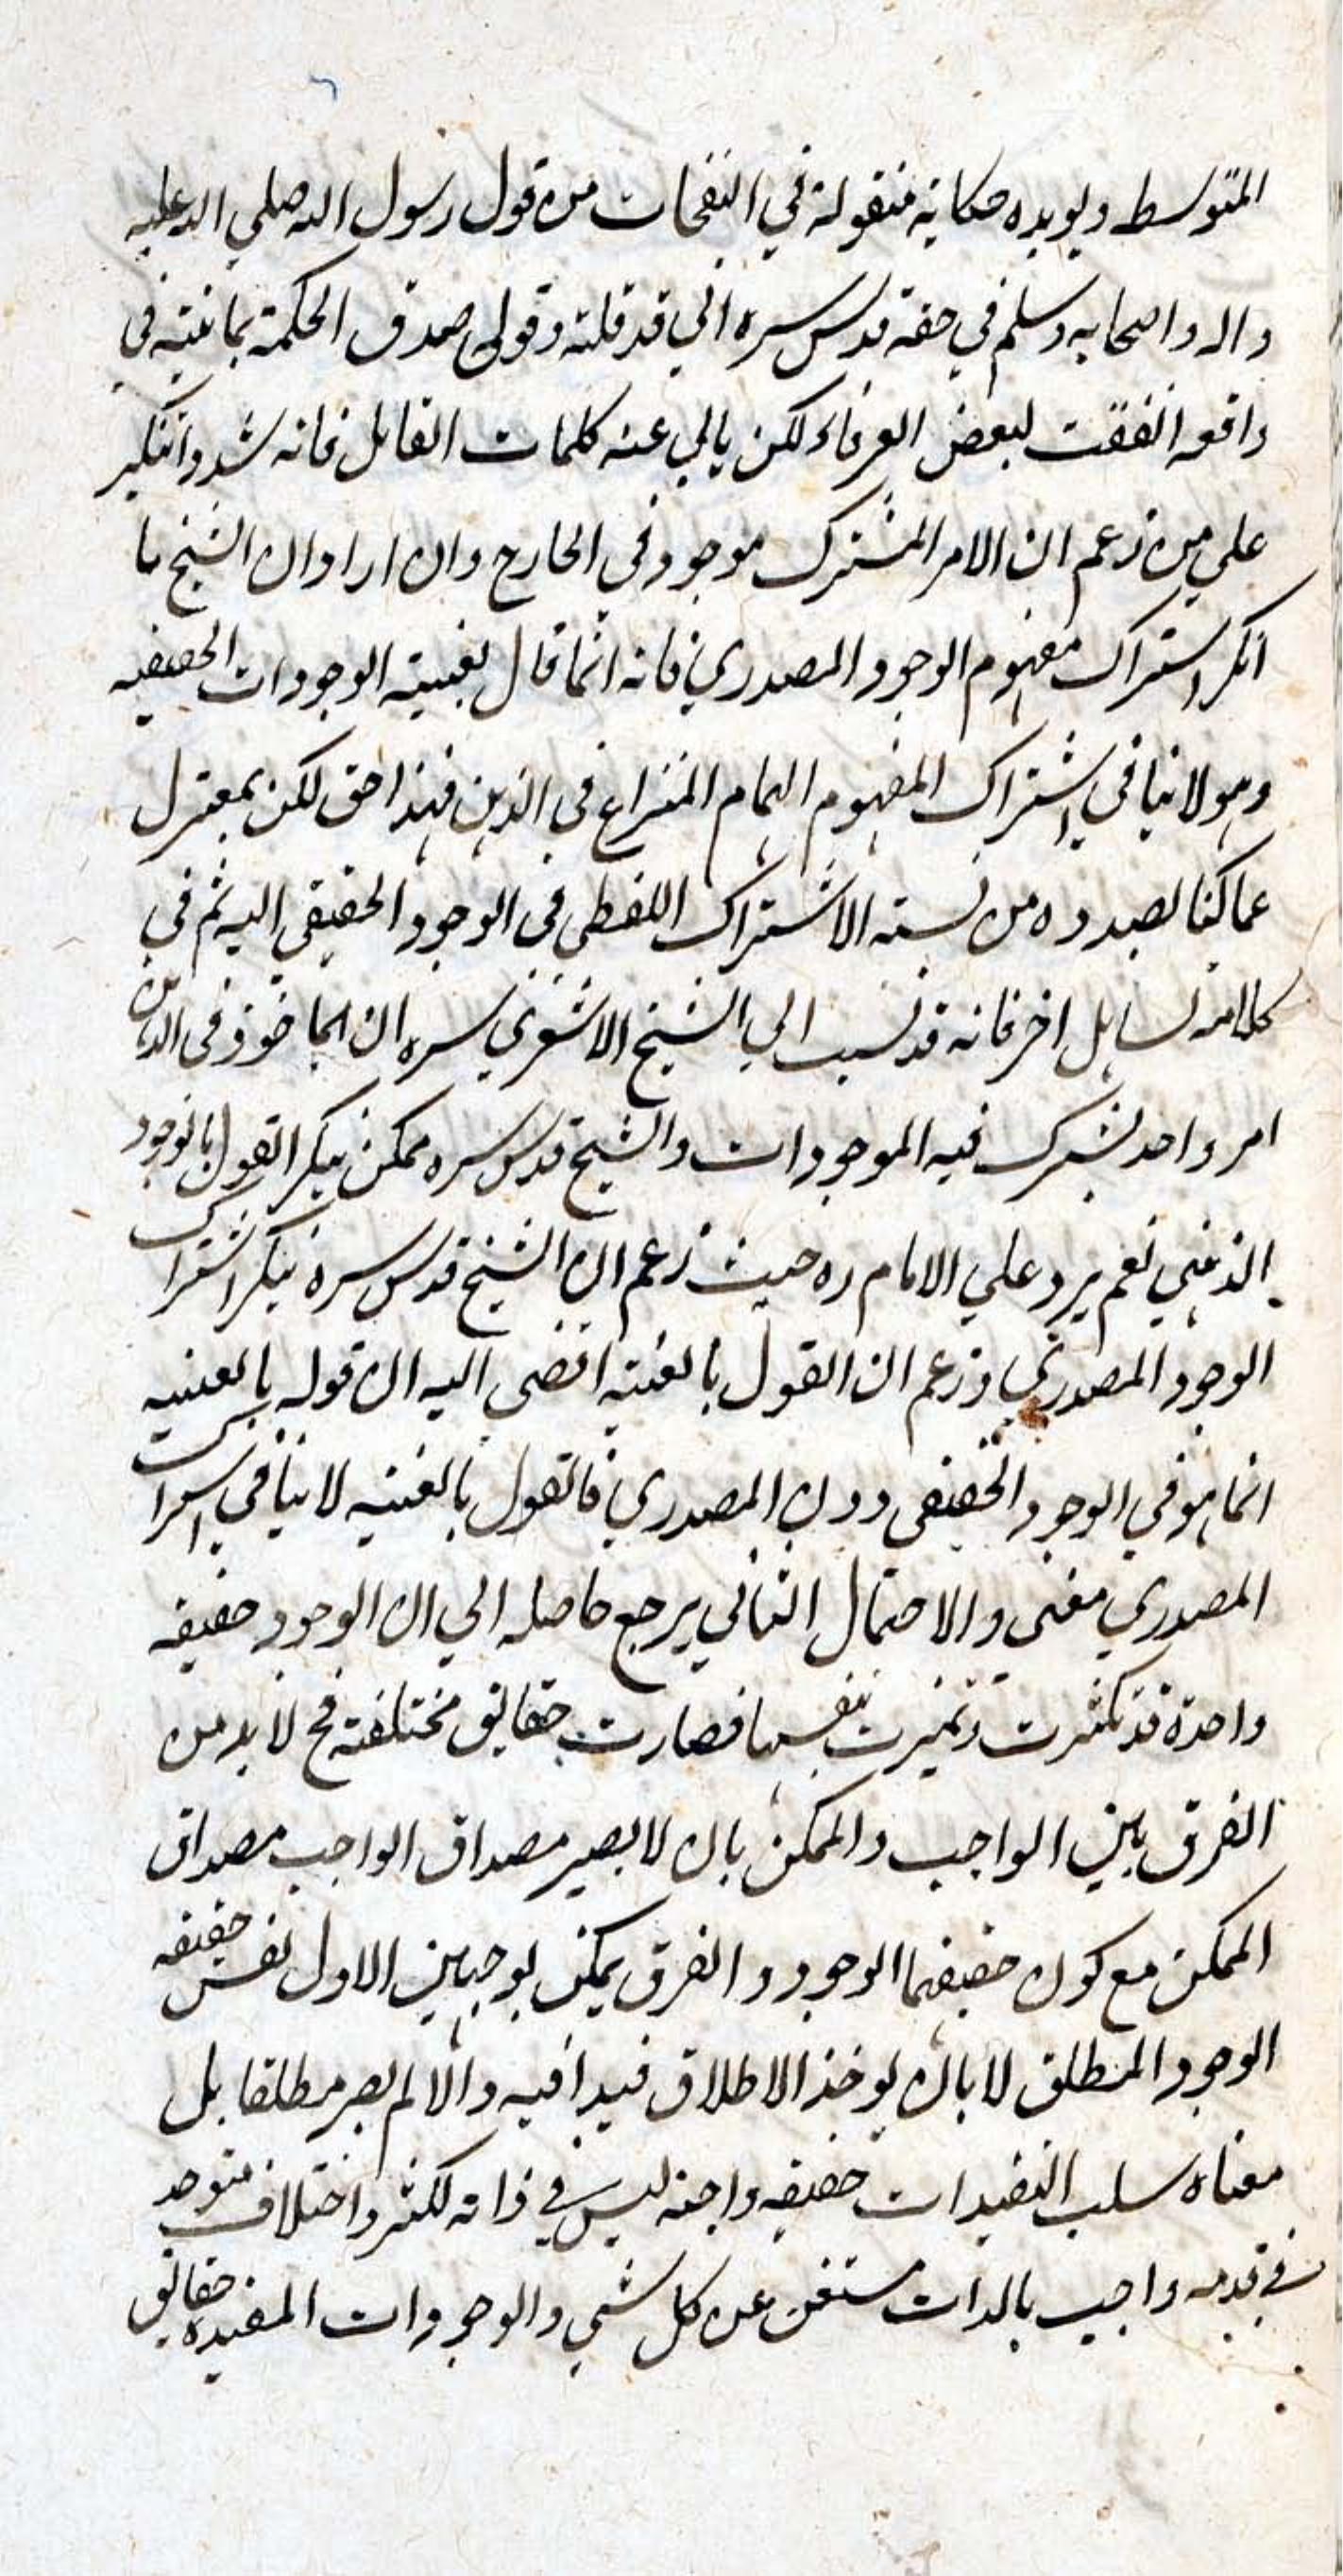 المتوسط ويويده حكاية منقولة في النفحات من قول رسول الله صلي الله عليه
واله واصحابه وسلم في حقه قدس سره اني قد قلته وقولي صدق الحكمة يمانية في
واقعه اتفقت لبعض العرفاء لكن يابي عنه كلمات القايل فانه شدد النكير
علي من زعم ان الامر المشترك موجود في الخارج وان اراد ان الشيخ ما
انكر اشتراك مفهوم الوجود المصدري فانه انما قال بعينية الوجودات الحقيقيه
وهو لا ينافي اشتراك المفهوم العام المنتزاع في الذهن فهذا حق لكن بمعزل
عما كنا بصدده من نسبة الاشتراك اللفظي في الوجود الحقيقي اليه ثم في
كلامه تساهل اخر فانه قد نسب الي الشيخ الاشعري سره ان الماخوذ في الذهن
امر واحد يشترك فيه الموجودات والشيخ قدس سره ممكن ينكر القول بالوجود
الذهني نعم يرد علي الامام ره حيث زعم ان الشيخ قدس سره ينكر اشتراك
الوجود المصدري وزعم ان القول بالعينية افضى اليه ان قوله بالعينيه
انما هو في الوجود الحقيقي دون المصدري فالقول بالعينيه لا ينافي اشتراك
المصدري معنى والاحتمال الثاني يرجع حاصله الي ان الوجود حقيقه
واحدة قد تكثرت وتميزت بنفسها فصارت حقايق مختلفة فح لا بد من
الفرق بين الواجب والممكن بان لا يصير مصداق الواجب مصداق
الممكن مع كون حقيقتهما الوجود والفرق يمكن بوجهين الاول نفس حقيقه
الوجود المطلق لا بان يوخذ الاطلاق قيدا فيه والا لم يصر مطلقا بل
معناه سلب التقيدات حقيقه واجبة ليس في ذاته تكثر واختلاف متوحد
في قدمه واجب بالذات مستغن عن كل شي والوجودات المقيده حقايق